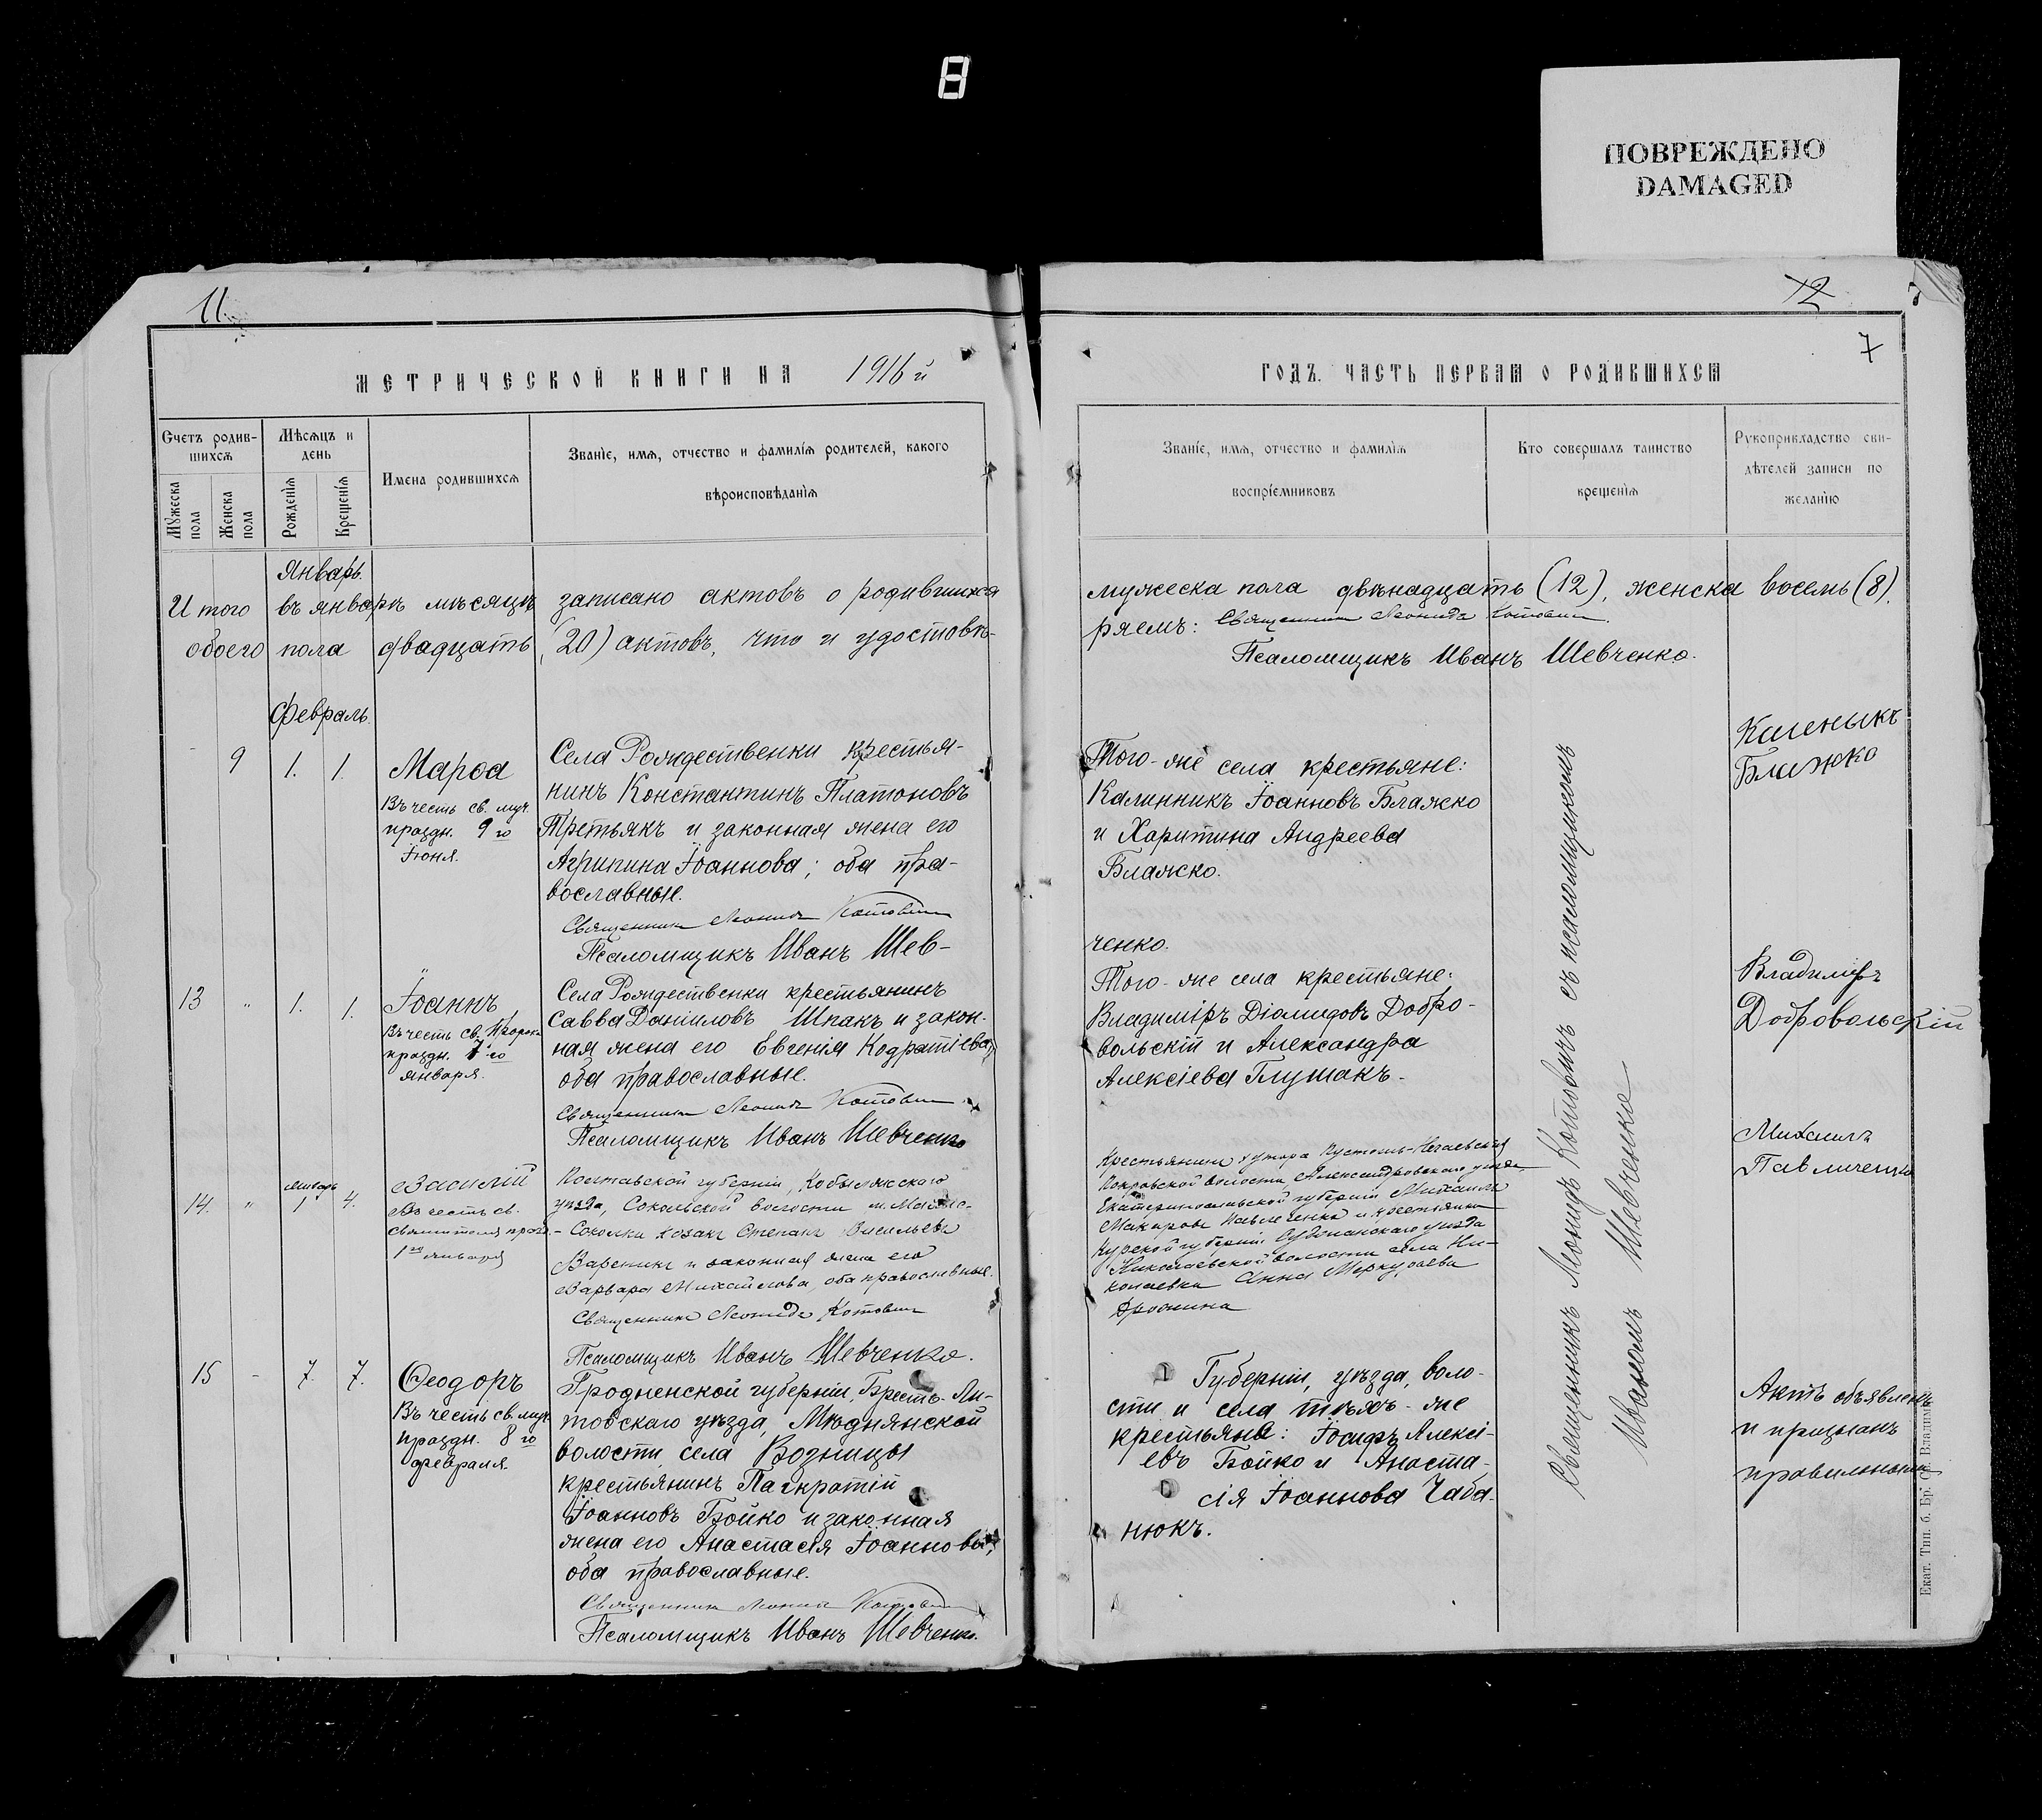 8
ПОВРЕЖДЕНО
DAMAGED
11.
12
7
МЕТРИЧЕСКОЙ КНИГИ НА 1916 й
ГОДЪ. ЧАСТЬ ПЕРВАЯ О РОДИВШИХСЯ
Счетъ родив-
шихся
Мужеска
пола
Женска
пола
Мѣсяцъ и
день
Рожденія
Крещенія
Имена родившихся
Званіе, имя, отчество и фамилія родителей, какого
вѣроисповѣданія
Званіе, имя, отчество и фамилія
воспріемниковъ
Кто совершалъ таинство
крещенія
Рукоприкладство сви-
дѣтелей записи по
желанію
Январь.
Итого въ январѣ мѣсяцѣ записано актовъ о родившихся
мужеска пола двѣнадцать (12), женска восемь (8),
обоего пола двадцать (20) актовъ, что и удостовѣ-
ряемъ: Священникъ Леонидъ Котовичъ.
Псаломщикъ Иванъ Шевченко.
Февраль.
9 1. 1.
Марѳа
Въ честь св. муч.
праздн. 9 го
Іюня.
Села Рождественки крестья-
нинъ Константинъ Платоновъ
Третьякъ и законная жена его
Агрипина Іоаннова; оба пра-
вославные.
Священникъ Леонидъ Котовичъ
Псаломщикъ Иванъ Шев-
Того-же села крестьяне:
Калинникъ Іоанновъ Блажко
и Харитина Андреева
Блажко.
ченко.
Каленыкъ
Блажко
13 " 1. 1.
Іоаннъ
Въ честь св. Пророк.
праздн. 7 го
января.
Села Рождественки крестьянинъ
Савва Даниловъ Шпакъ и закон-
ная жена его Евгенія Кодратіева,
оба православные.
Священникъ Леонидъ Котовичъ
Псаломщикъ Иванъ Шевченко
Того-же села крестьяне:
Владиміръ Діомидовъ Добро-
вольскій и Александра
Алексіева Глушакъ.
Владимиръ
Добровольскій
14. " январь 1 4.
Василій
Въ честь св.
святителя празд.
1 го января
Полтавской губерніи, Кобылякского
уѣзда, Сокольской волости м. Мало-
- Соколки козакъ Степанъ Васильевъ
Вареникъ и законная жена его
Варвара Михайлова, оба православные.
Священникъ Леонидъ Котовичъ
Псаломщикъ Иванъ Шевченко.
Крестьянинъ хутора
Покровской волости, Александровского уѣзда,
Екатеринославской губерніи Михаилъ
Макаровъ Павличенко и крестьянка
Курской губерніи Суджанского уѣзда
Николаевской волости села Ни-
колаевки Анна Меркурьева
Михаилъ
Павличенко
15 - 7. 7.
Ѳеодоръ
Въ честь св. муч.
праздн. 8 го
февраля.
Гродненской губерніи, Брестъ-Ли-
товскаго уѣзда, Мюднянской
волости, села Возницы
крестьянинъ Панкратій
Іоанновъ Бойко и законная
жена его Анастасія Іоаннова,
оба православные.
Священникъ Леонидъ Котовичъ
Псаломщикъ Иванъ Шевченко.
Губерніи, уѣзда, воло-
сти и села тѣхъ-же
крестьяне: Іосифъ Алексі-
евъ Бойко и Анаста-
сія Іоаннова Чаба-
нюкъ.
Актъ объявленъ
и признанъ
правильнымъ
Священникъ Леонидъ Котовичъ съ псаломщикомъ
Иваномъ Шевченко
Екат. Тип. б. Бр. Св. Владим.